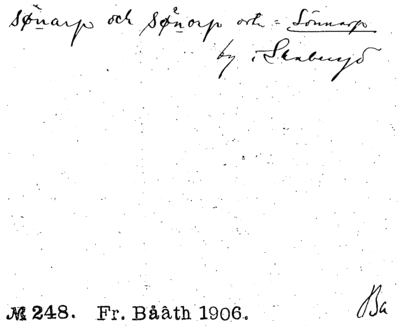 sø̀narp och sø̀norp ortn = Sönnarp
by i Skabersjö
№ 248. Fr. Bååth 1906. Ba